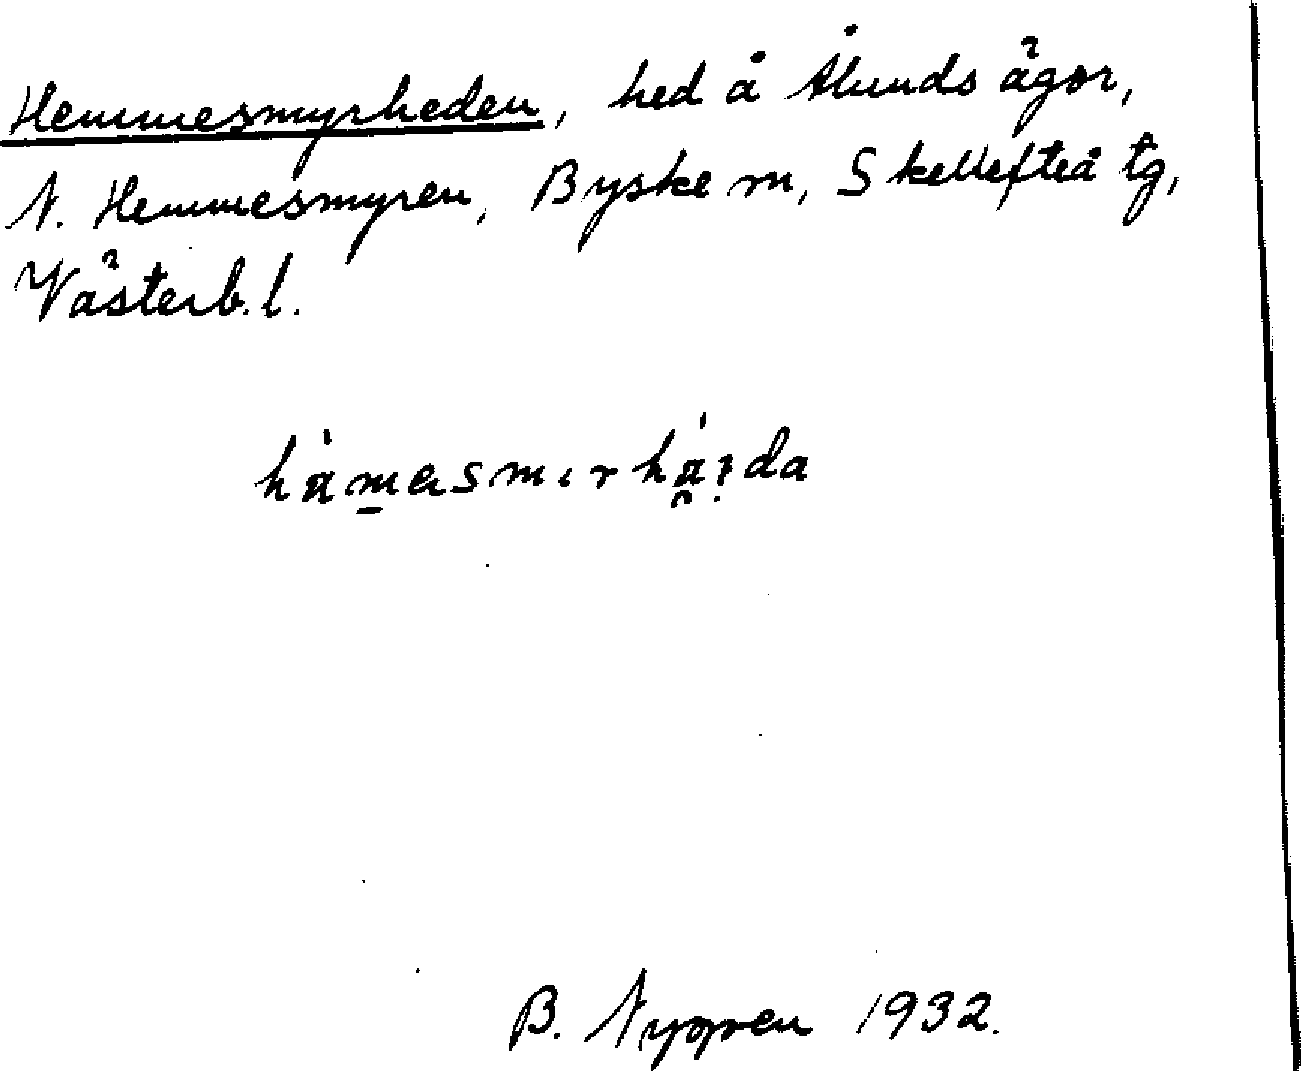 Hemmesmyrheden, hed å Ålunds ägor,
N. Hemmesmyren, Byske sn, Skellefteå tg,
Västerb. l.
B. Nygren 1932.